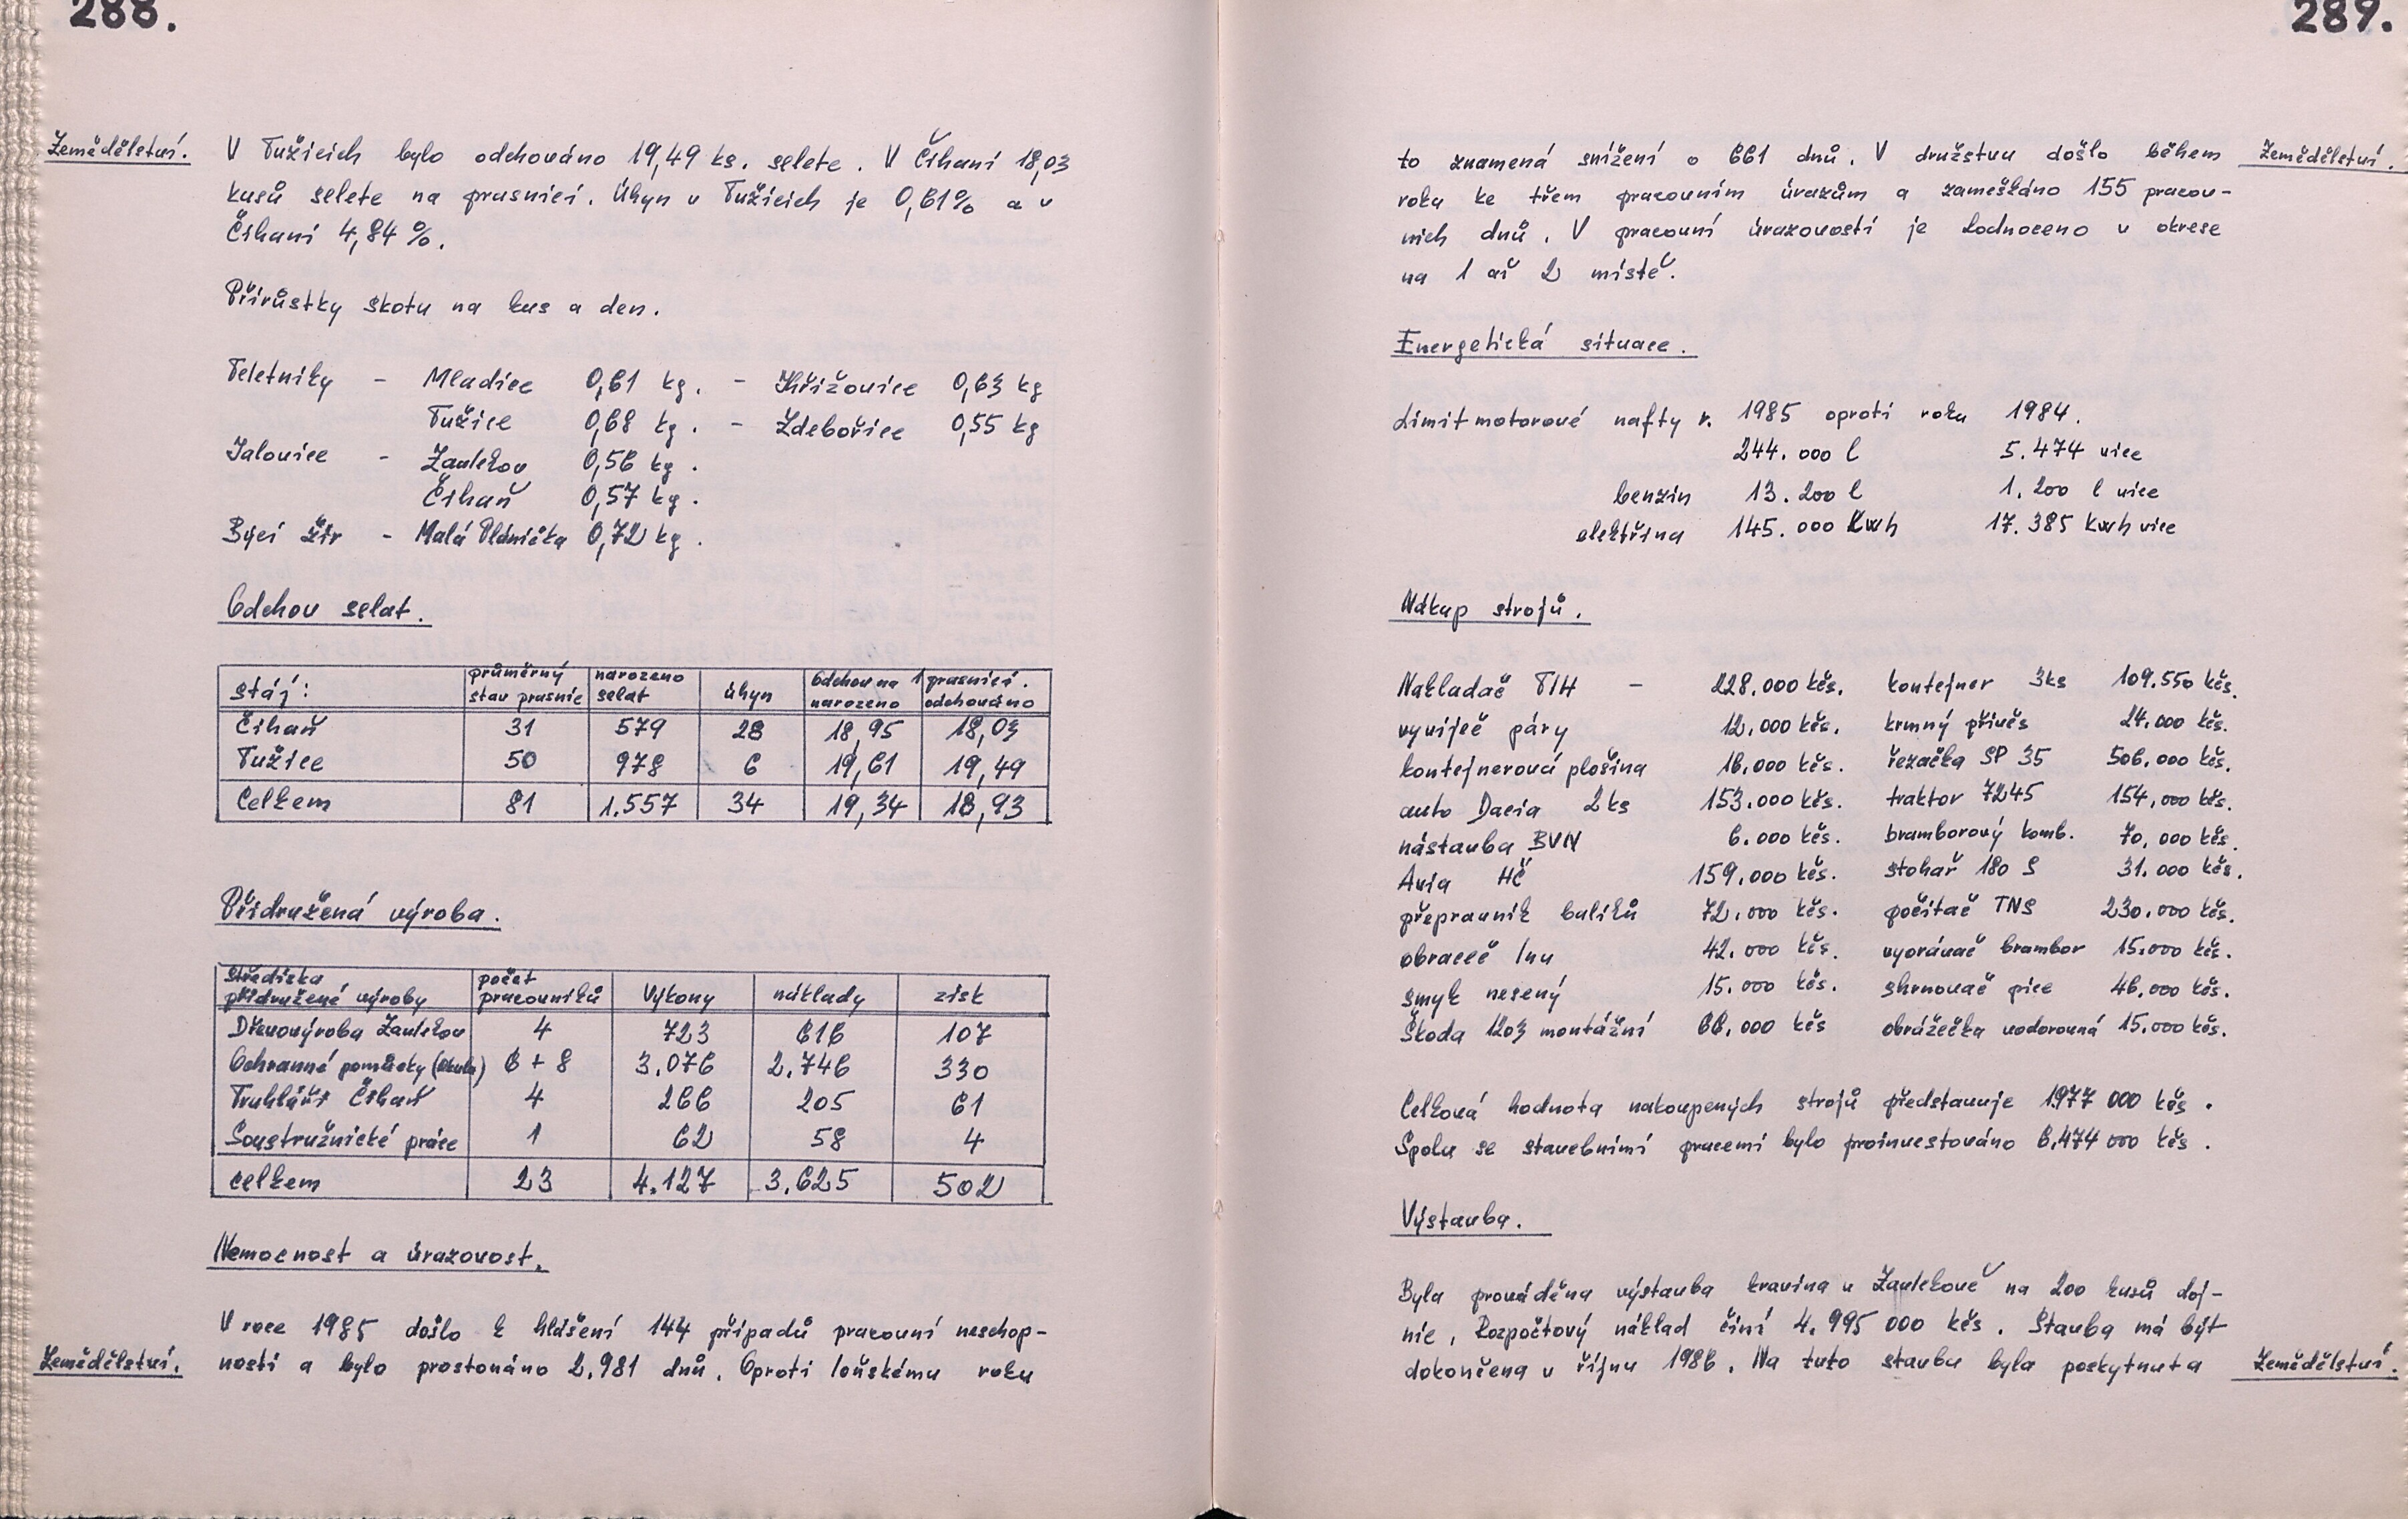 288.
Zemědělství.
V Tužicích bylo odchováno 19,49 ks. selete. V Číhani 18,03
kusů selete na prasnici. Úhyn v Tužicích je 0,61% a v
Číhani 4,84 %.
Přírůstky skotu na kus a den.
Teletníky - Mladice 0,61 kg. - Křižovice 0,63 kg
Tužice 0,68 kg. - Zdebořice 0,55 kg
Jalovice - Zavlekov 0,56 kg.
Číhaň 0,57 kg.
Býčí žír - Malá Plánička 0,72 kg.
Odchov selat.
stáj: průměrný stav prasnic narozeno selat úhyn Odchov na 1 prasnici. narozeno odchováno
Číhaň 31 579 28 18,95 18,03
Tužice 50 978 6 19,61 19,49
Celkem 81 1.557 34 19,34 18,93
Přidružená výroba.
Střediska přidružené výroby počet pracovníků Výkony náklady zisk
Dřevovýroba Zavlekov 4 723 616 107
Ochranné pomůcky (Okula) 6 + 8 3.076 2.746 330
Truhláři Číhaň 4 266 205 61
Soustružnické práce 1 62 58 4
celkem 23 4.127 3.625 502
Nemocnost a úrazovost.
V roce 1985 došlo k hlášení 144 případů pracovní neschop-
Zemědělství.
ností a bylo prostonáno 2.981 dnů. Oproti loňskému roku
289.
to znamená snížení o 661 dnů. V družstvu došlo během
Zemědělství.
roku ke třem pracovním úrazům a zameškáno 155 pracov-
ních dnů. V pracovní úrazovosti je hodnoceno v okrese
na 1 až 2 místě.
Energetická situace.
Limit motorové nafty r. 1985 oproti roku 1984.
244.000 l 5.474 více
benzin 13.200 l 1.200 l více
elektřina 145.000 kwh 17.385 kwh více
Nákup strojů.
Nakladač TIH - 228.000 kčs. kontejner 3ks 109.550 kčs.
vyvíječ páry 12.000 kčs. krmný přívěs 24.000 kčs.
kontejnerová plošina 16.000 kčs. řezačka SP 35 506.000 kčs.
auto Dacia 2 ks 153.000 kčs. traktor 7245 154,000 kčs.
nástavba BVN 6.000 kčs. bramborový komb. 70,000 kčs.
Avia HČ 159.000 kčs. stohař 180 S 31.000 kčs.
přepravník balíků 72.000 kčs. počítač TNS 230.000 kčs.
obraceč lnu 42.000 kčs. vyorávač brambor 15.000 kčs.
smyk nesený 15.000 kčs. shrnovač píce 46,000 kčs.
Škoda 1203 montážní 66,000 kčs obrážečka vodorovná 15.000 kčs.
Celková hodnota nakoupených strojů představuje 1977 000 kčs.
Spolu se stavebními pracemi bylo proinvestováno 6,474 000 kčs.
Výstavba.
Byla prováděna výstavba kravína v Zavlekově na 200 kusů doj-
nic, Rozpočtový náklad činí 4.995 000 kčs. Stavba má být
dokončena v říjnu 1986. Na tuto stavbu byla poskytnuta
Zemědělství.